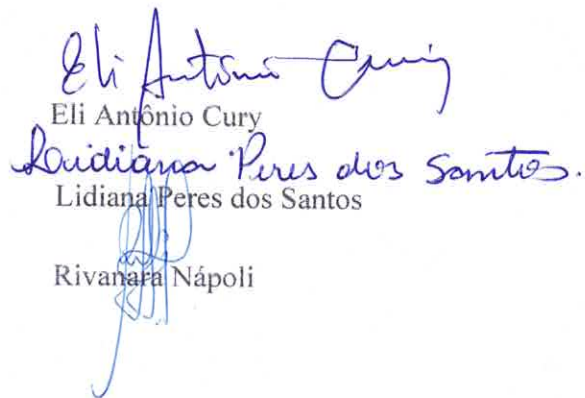 Eli Antônio Cury
Eli Antônio Cury
Lidiana Peres dos Santos.
Lidiana Peres dos Santos
Rivanara Nápoli